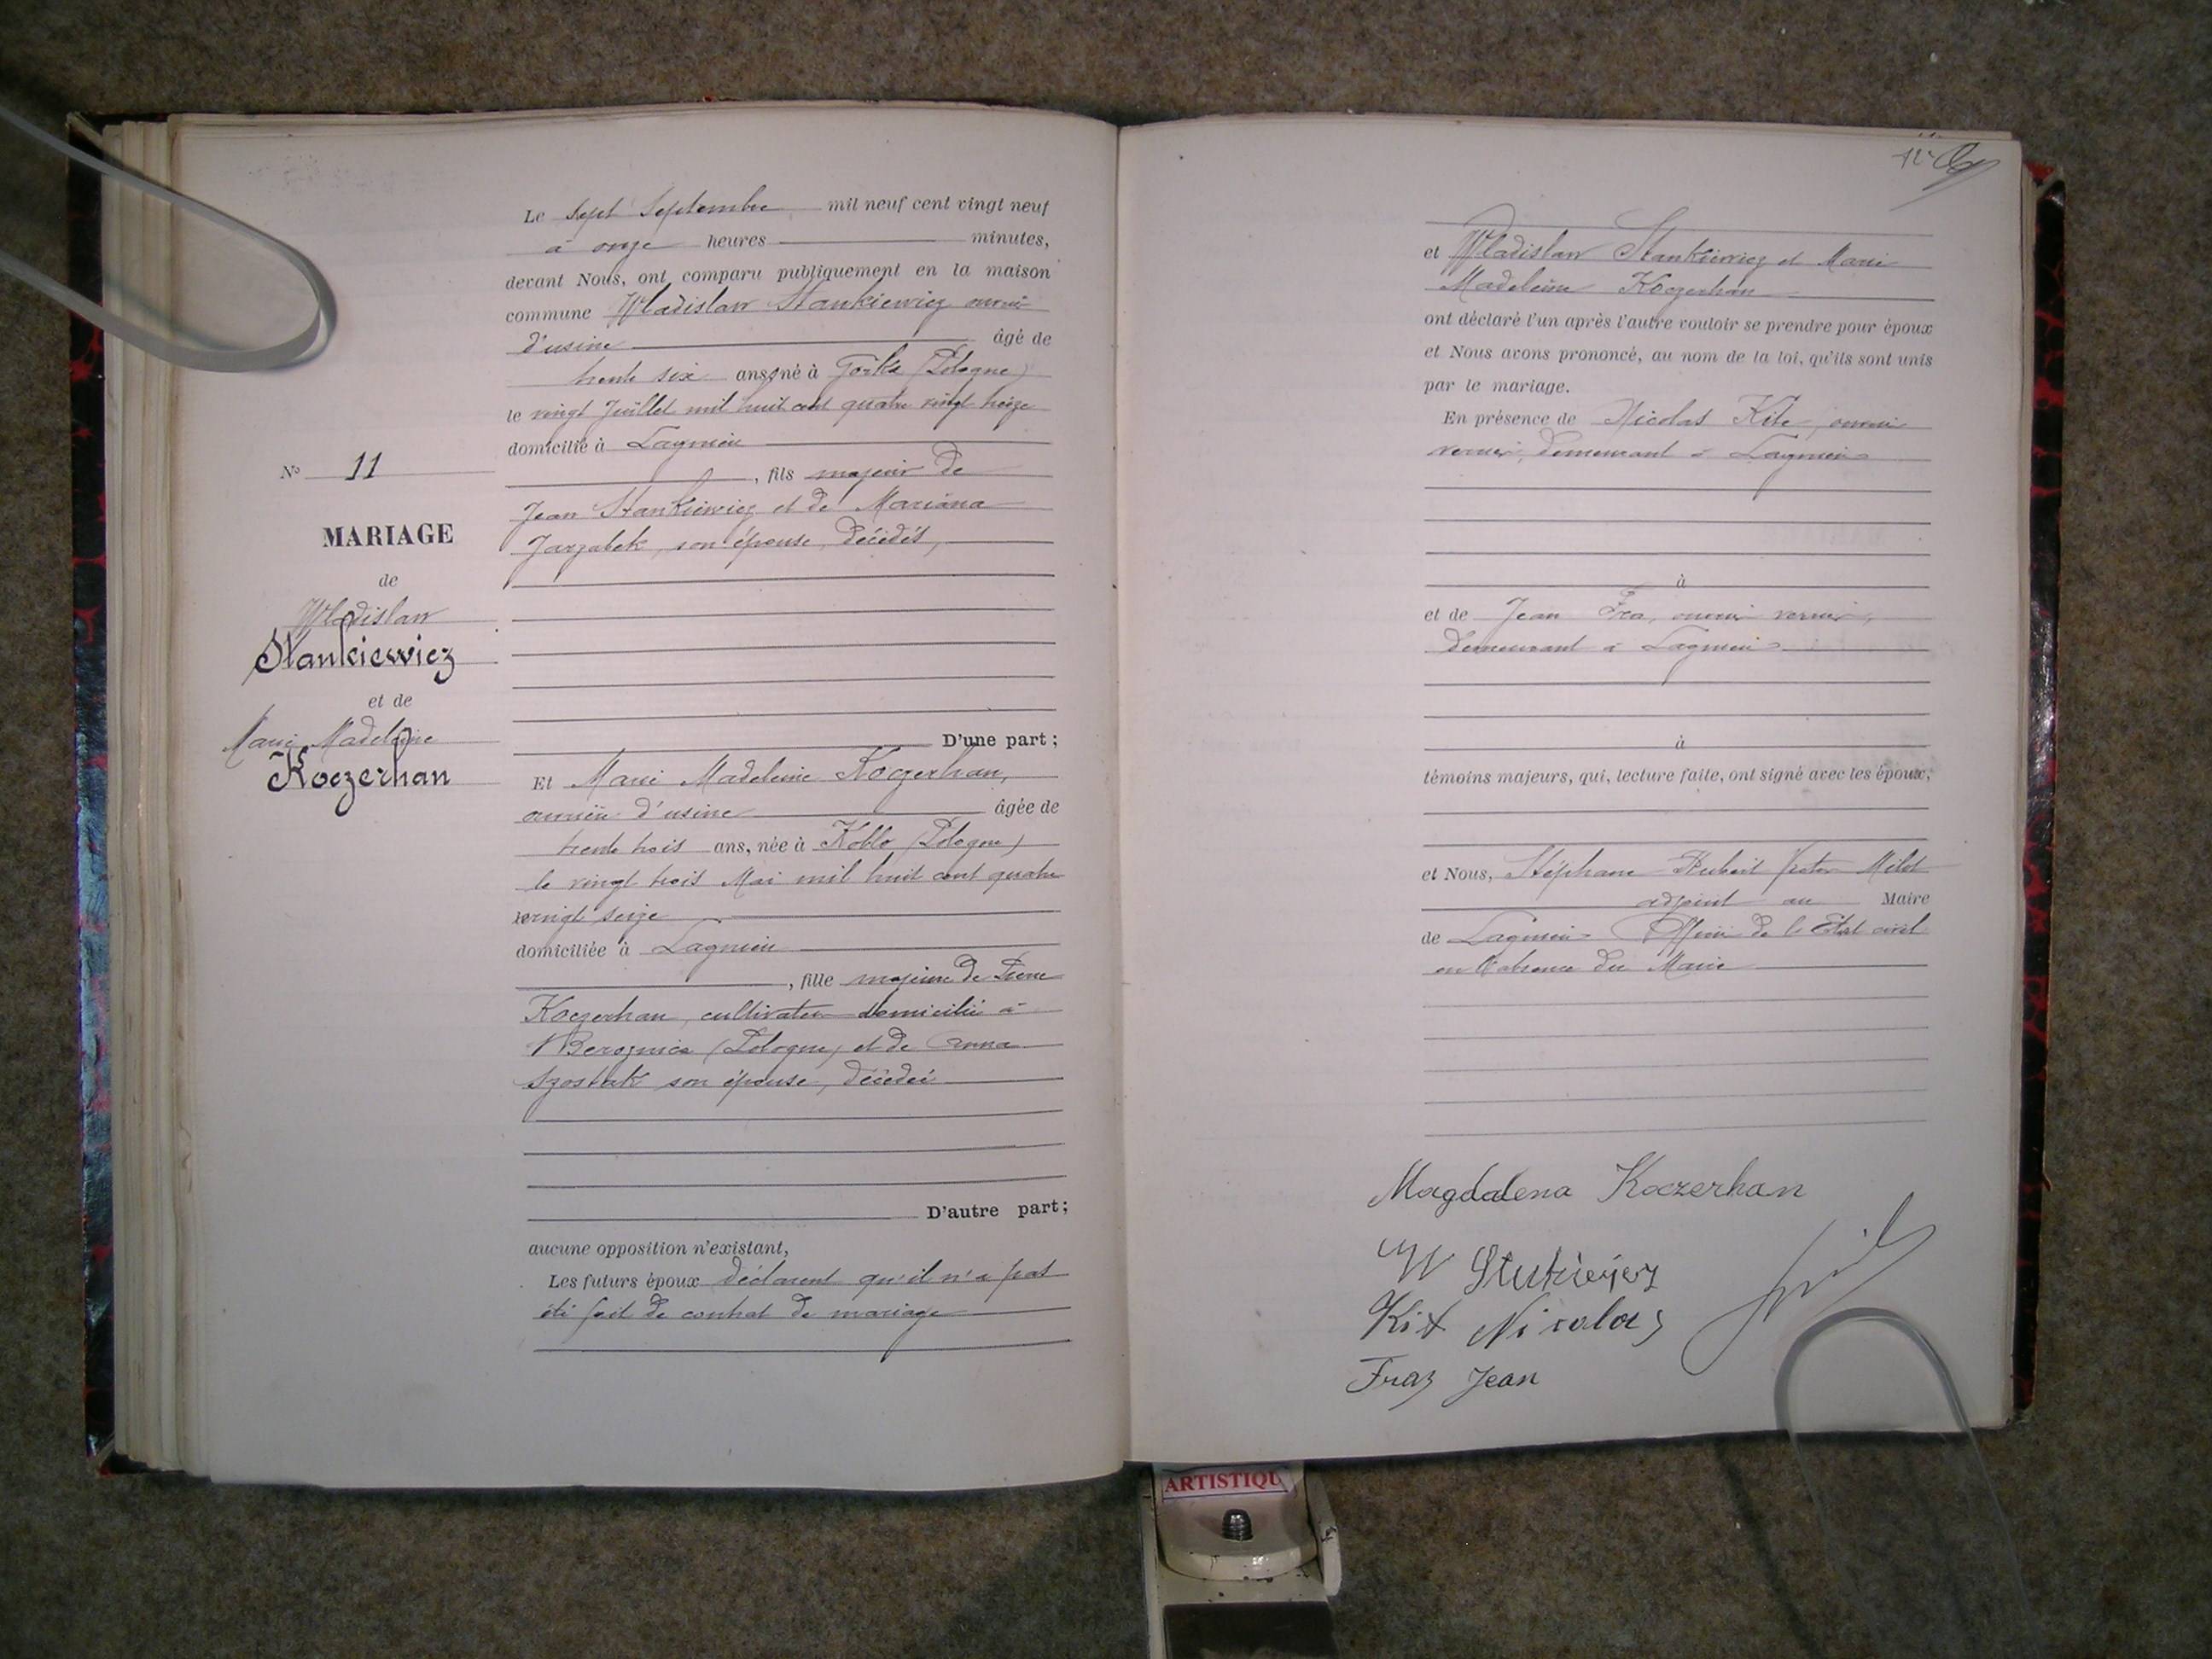 N° 11
MARIAGE
de
Wladislaw
Stankiewicz
et de
Marie Madeleine
Koczerhan
Le sept Septembre mil neuf cent vingt neuf
à onze heures minutes,
devant Nous, ont comparu publiquement en la maison
commune Wladislaw Stankiewicz ouvrier
d'usine âgé de
trente six ans, né à Gorka (Pologne)
le vingt Juillet mil huit cent quatre vingt treize
domicilié à Lagnieu
, fils majeur de
Jean Stankiewicz et de Mariana
Jarzabek, son épouse, décédés,
D'une part ;
Et Marie Madeleine Koczerhan,
ouvrière d'usine âgée de
trente trois ans, née à Koblo (Pologne)
le vingt trois Mai mil huit cent quatre
vingt seize
domiciliée à Lagnieu
, fille majeure de Pierre
Koczerhan, cultivateur domicilié à
(Pologne) et de Anna
Szostak son épouse, décédée
D'autre part ;
aucune opposition n'existant,
Les futurs époux déclarent qu'il n'a pas
été fait de contrat de mariage
et Wladislaw Stankiewicz et Marie
Madeleine Koczerhan
ont déclaré l'un après l'autre vouloir se prendre pour époux
et Nous avons prononcé, au nom de la loi, qu'ils sont unis
par le mariage.
En présence de Nicolas Kite, ouvrier
verrier, demeurant à Lagnieu
à
et de Jean Fra, ouvrier verrier,
demeurant à Lagnieu
à
témoins majeurs, qui, lecture faite, ont signé avec les époux,
et Nous, Stéphane Milet
adjoint au Maire
de Lagnieu Officier de l'Etat civil
en l'absence du Maire
Magdalena Koczerhan
W
Kit Nicolas
Fraz Jean
ARTISTIQU